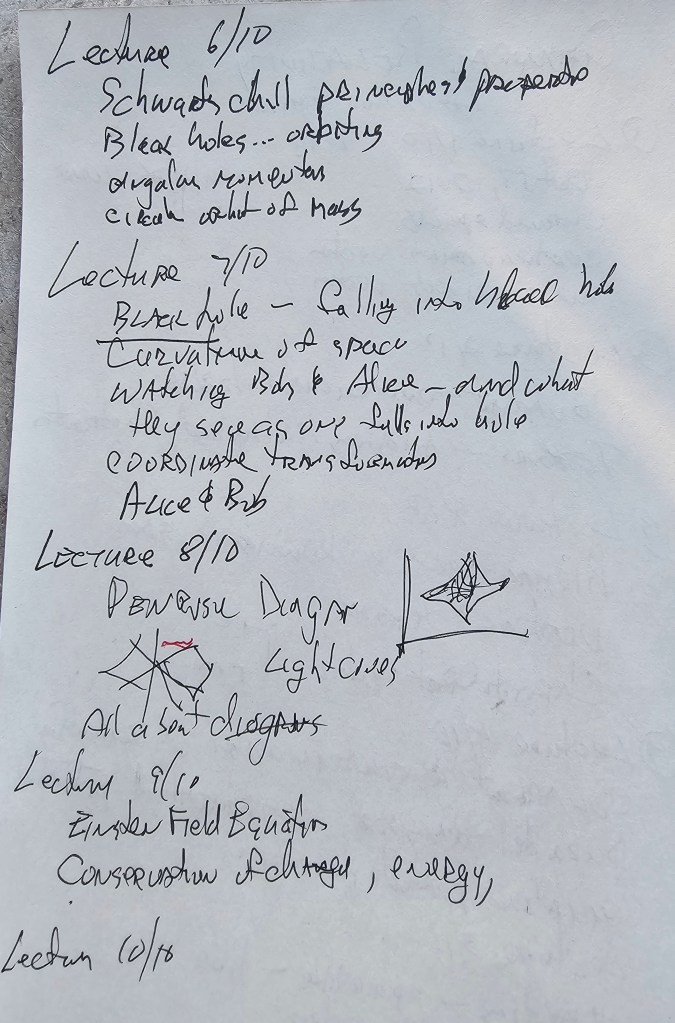 Lecture 6/10
Schwartschill principles & properties
Black holes... orbiting
angular momentum
circular orbit of mass
Lecture 7/10
Black hole - falling into blacel hole
Curvature of space
Watching Bob & Alice - and what
they see as one falls into hole
COORDINATE TRANSformations
Alice & Bob
Lecture 8/10
Diagr
Light cones
All about diagrams
Lecture 9/10
Field Equations
Conservation of charge, energy,
Lecture 10/10